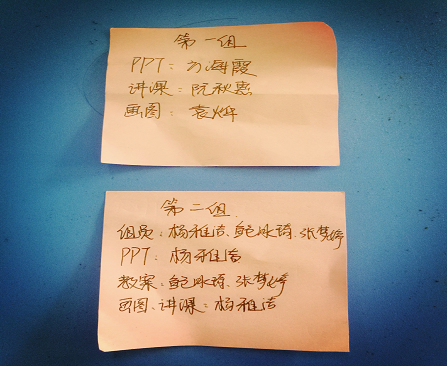 第一组
PPT：方海霞
讲课：阮秋惠
画图：袁烨
第二组
组员：杨雅洁、鲍咏琦、张梦婷
PPT：杨雅洁
教案：鲍咏琦、张梦婷
画图、讲课：杨雅洁